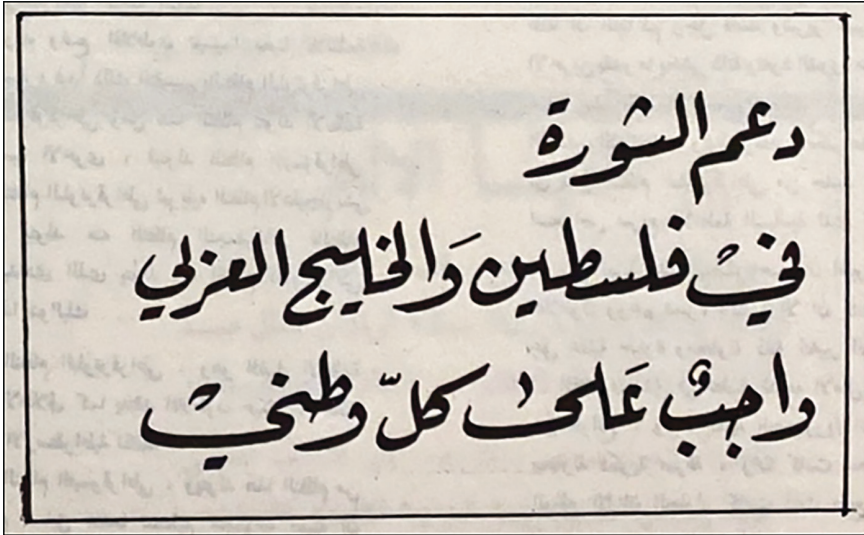 دعم الثورة
في فلسطين وَالخليج العربي
واجبٌ عَلى كلّ وطني